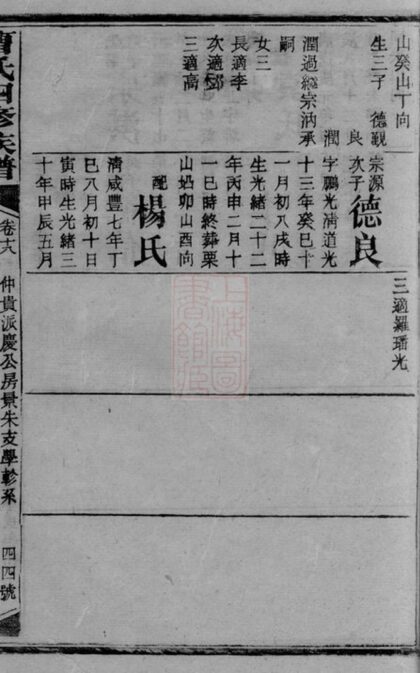 山癸山丁向
生三子 德觀
良
潤
潤過繼宗汭承
嗣
女三
長適李
次適鄧
三適高
宗源
次子
德良
字鵬光清道光
十三年癸巳十
一月初八戌時
生光緒二十二
年丙申二月十
一巳時終葬栗
山坳卯山酉向
配
楊氏
清咸豐七年丁
巳八月初十日
寅時生光緒三
十年甲辰五月
三適羅璠光
氏四修族譜
仲貴派慶公房景朱支學軫系
四四號
上海圖
書館藏